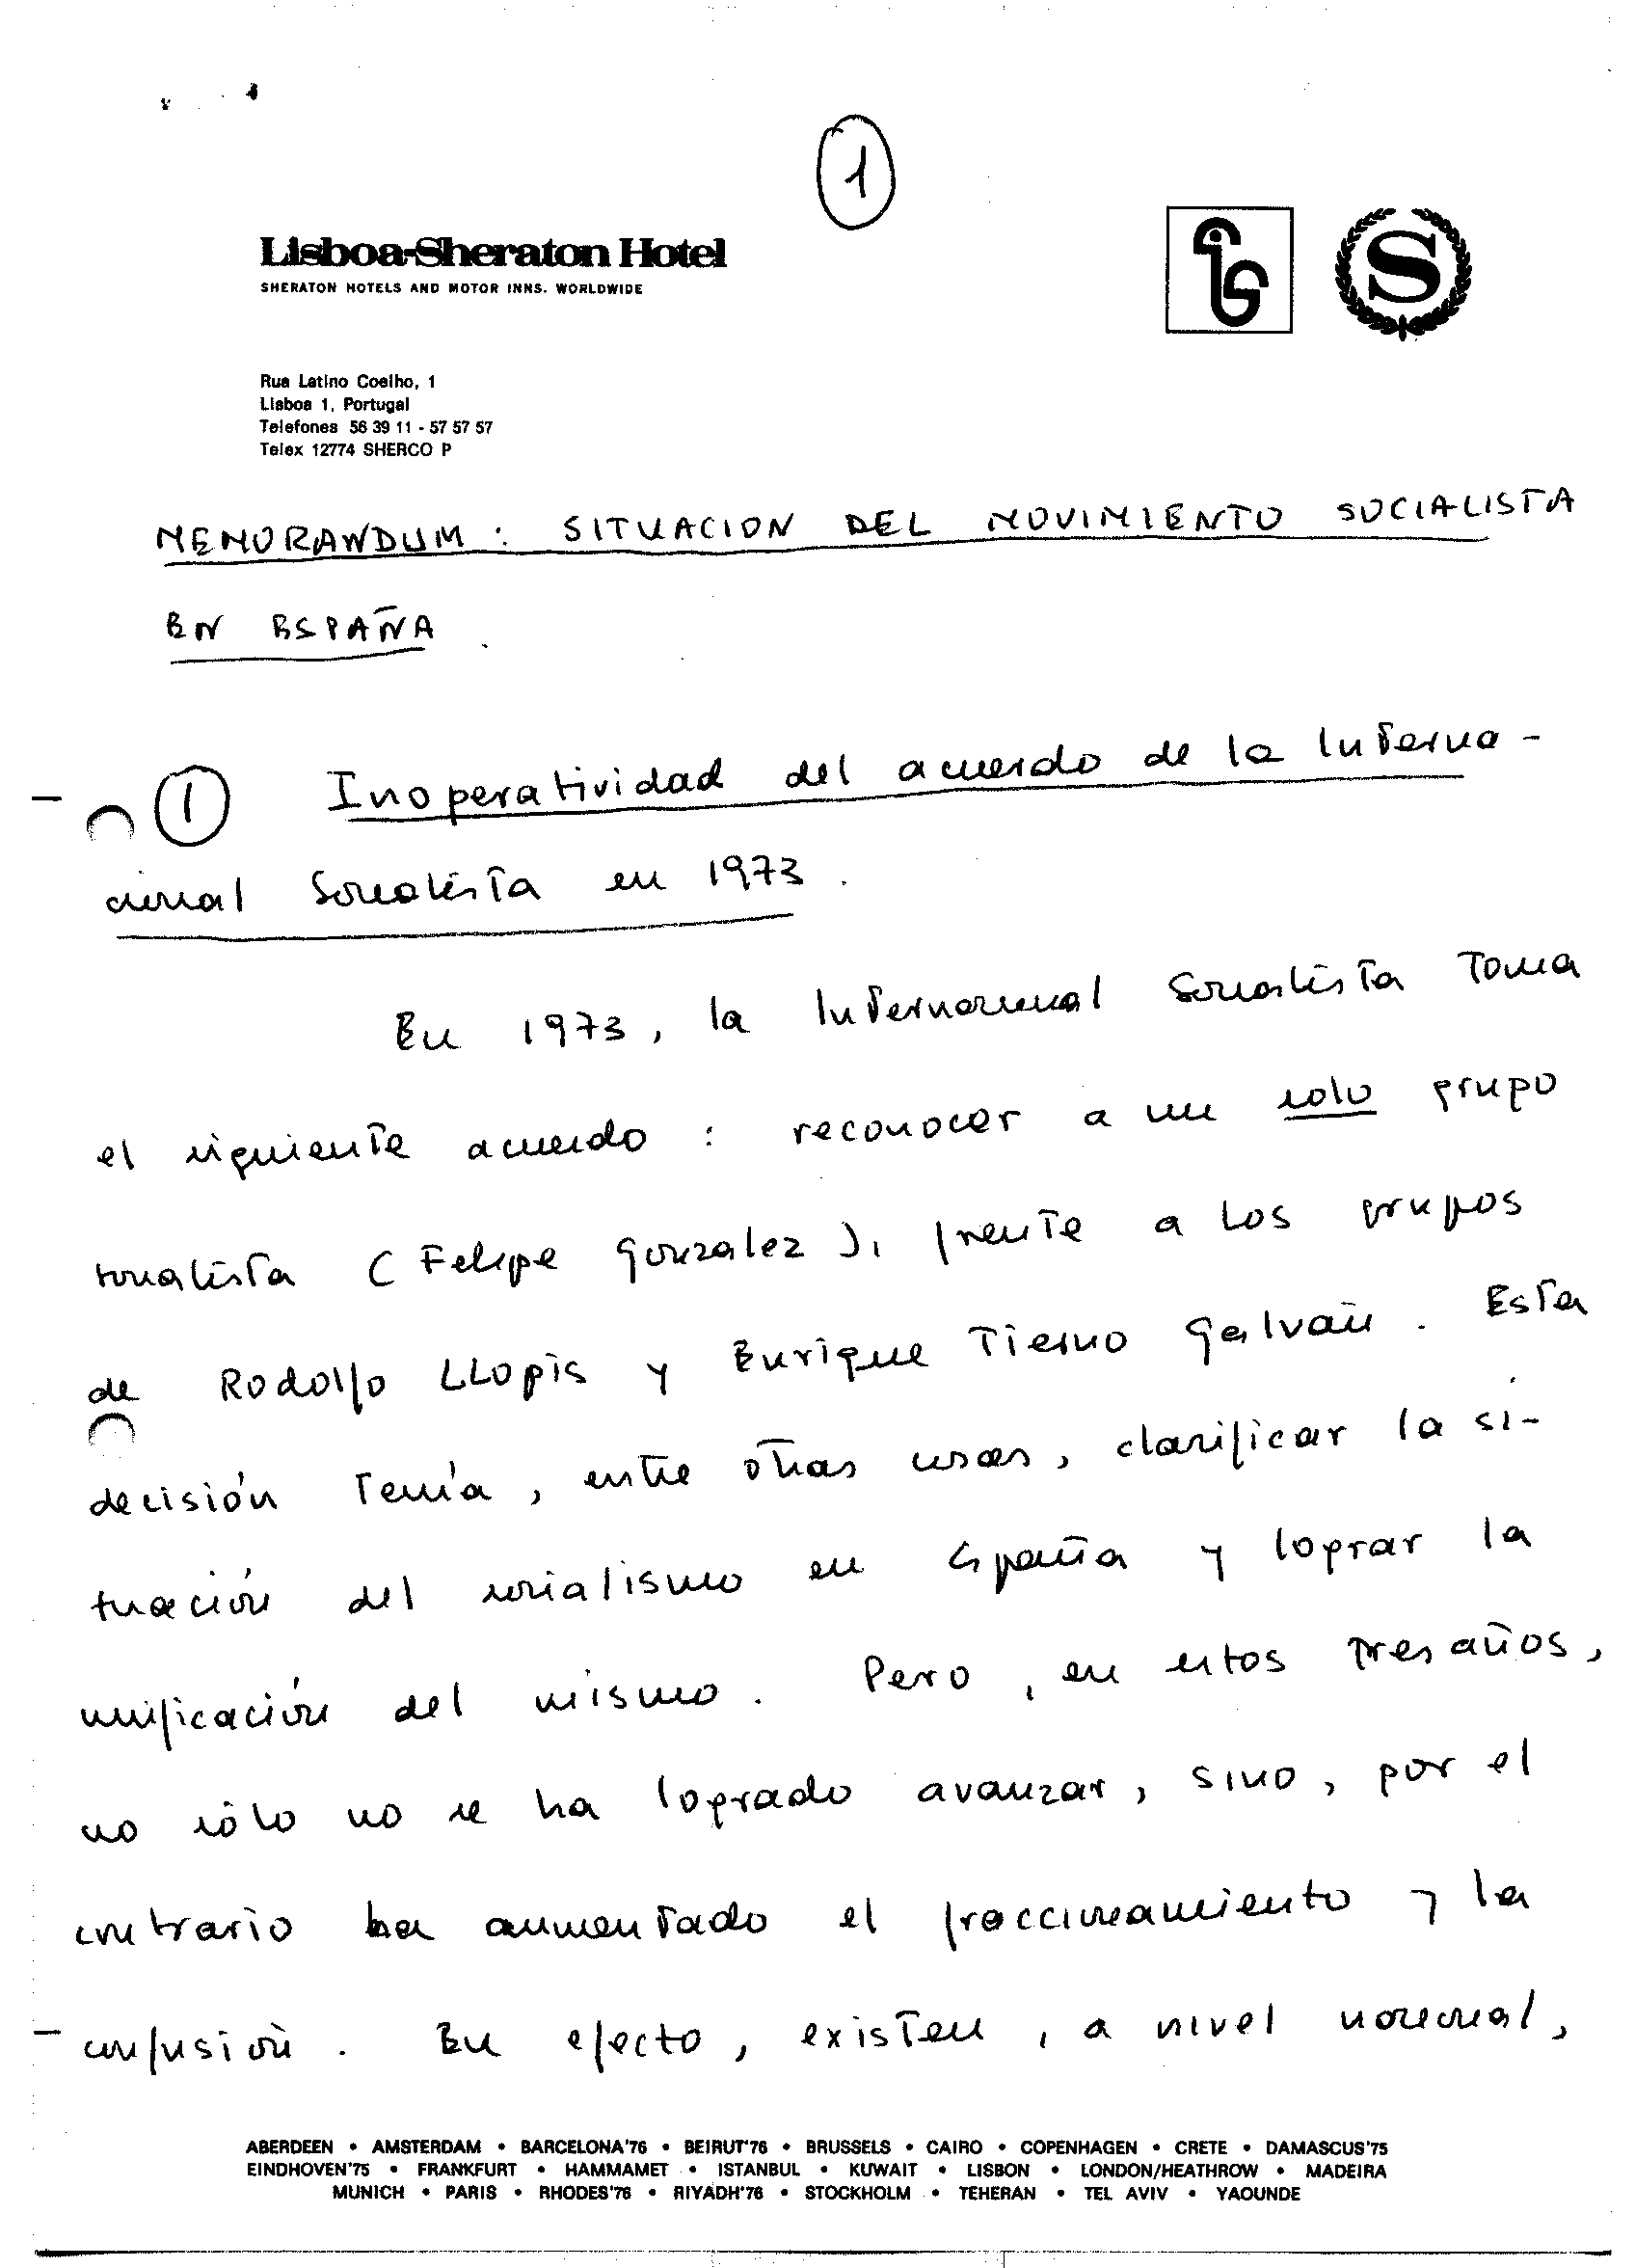 1
Lisboa-Sheraton Hotel
SHERATON HOTELS AND MOTOR INNS. WORLDWIDE
S
Rua Latino Coelho, 1
Lisboa 1, Portugal
Telefones 56 39 11 - 57 57 57
Telex 12774 SHERCO P
MEMORANDUM : SITUACION DEL MOVIMIENTO SOCIALISTA
EN ESPAÑA.
① Inoperatividad del acuerdo de la Interna-
cional Socialista en 1973.
En 1973, la Internacional Socialista toma
el siguiente acuerdo : reconocer a un solo grupo
socialista (Felipe González), frente a los grupos
de Rodolfo Llopis y Enrique Tierno Galván. Esta
decisión tenía, entre otras cosas, clarificar la si-
tuación del socialismo en España y lograr la
unificación del mismo. Pero, en estos tres años,
no sólo no se ha logrado avanzar, sino, por el
contrario ha aumentado el fraccionamiento y la
confusión. En efecto, existen, a nivel nacional,
ABERDEEN • AMSTERDAM • BARCELONA'76 • BEIRUT'76 • BRUSSELS • CAIRO • COPENHAGEN • CRETE • DAMASCUS'75
EINDHOVEN'75 • FRANKFURT • HAMMAMET • ISTANBUL • KUWAIT • LISBON • LONDON/HEATHROW • MADEIRA
MUNICH • PARIS • RHODES'76 • RIYADH'76 • STOCKHOLM • TEHERAN • TEL AVIV • YAOUNDE